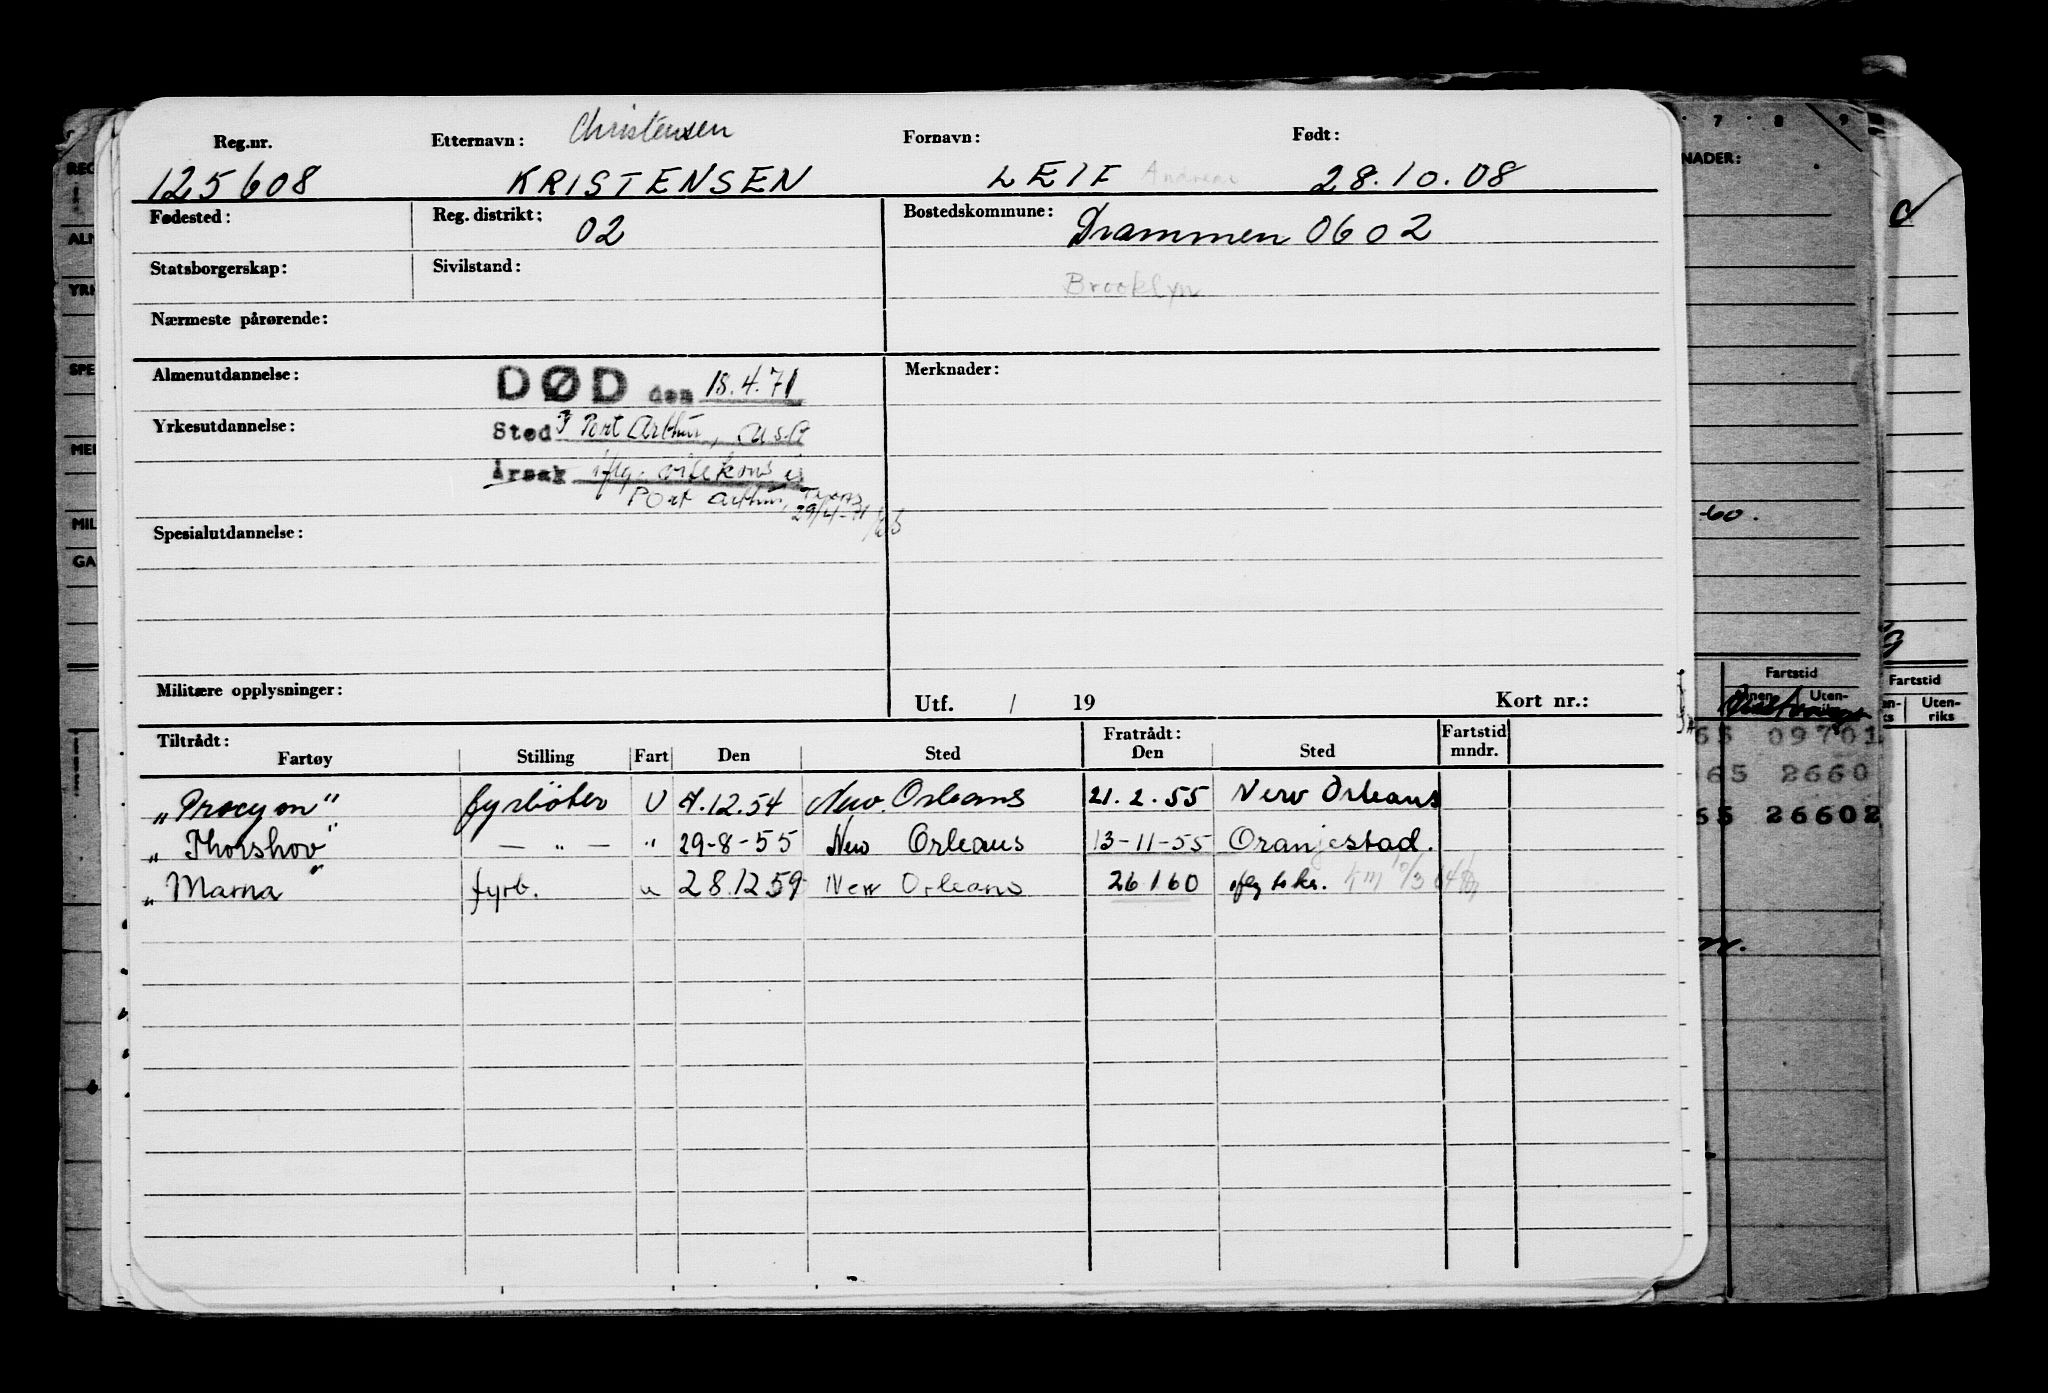 Christensen
Reg.nr. Etternavn: Fornavn: Født:
125608 KRISTENSEN LEIF Andreas 28.10.08
Fødested: Reg. distrikt: 02 Bostedskommune: Drammen 0602
Statsborgerskap: Sivilstand: Brooklyn
Nærmeste pårørende:
Almenutdannelse: DØD den 18.4.71 Merknader:
Yrkesutdannelse: Sted Port Arthur, U.S.A
Årsak iflg. visekons i
Port Arthur, Texas
29/4-71
Spesialutdannelse:
Militære opplysninger: Utf. / 19 Kort nr.:
Tiltrådt: Fratrådt: Fartstid
Fartøy Stilling Fart Den Sted Den Sted mndr.
„Procyon" fyrbøter U 4.12.54 New Orleans 21.2.55 New Orleans
„Thorshov" — " — " 29-8-55 New Orleans 13-11-55 Oranjestad.
„Marna" fyrb. " 28.12 59 New Orleans 26 1 60
7 8 9
NADER:
-60.
Fartstid
Uten-
65 09701
65 2660
65 26602
Fartstid
Uten-
riks
REG
ALM
YRK
SPE
MIL
GA